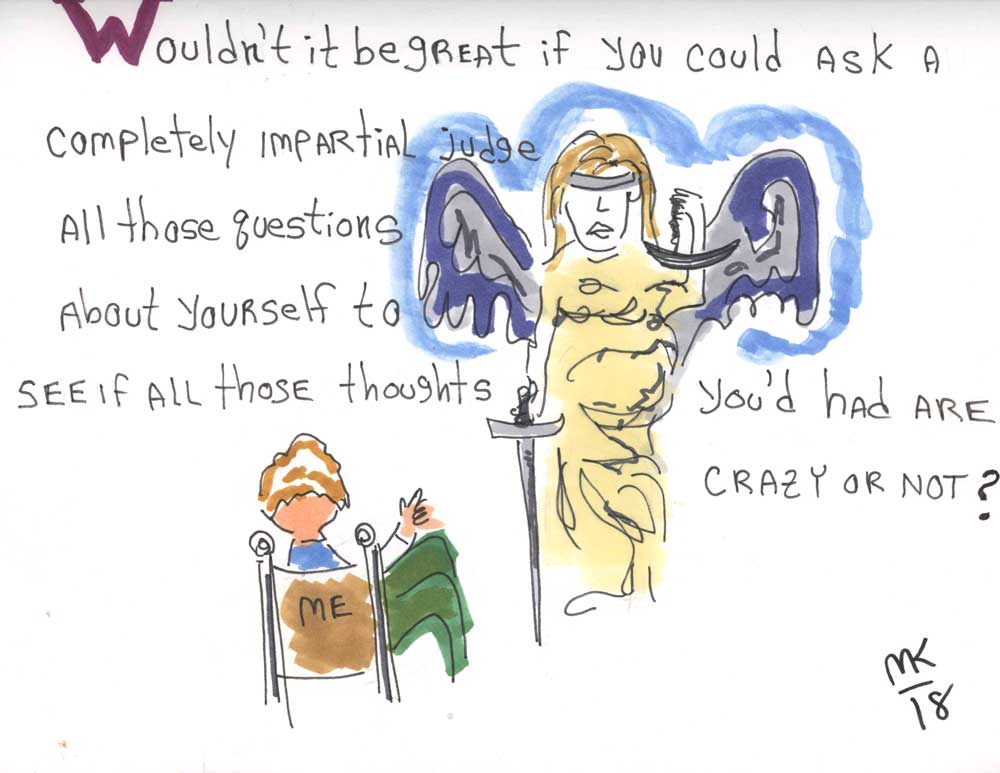 Wouldn't it be gREAt if you could ASK A
completely IMPARtiAL judge
All those questions
About yourself to
SEE if ALL those thoughts you'd had ARE
CRAZY OR NOT?
ME
MK
18